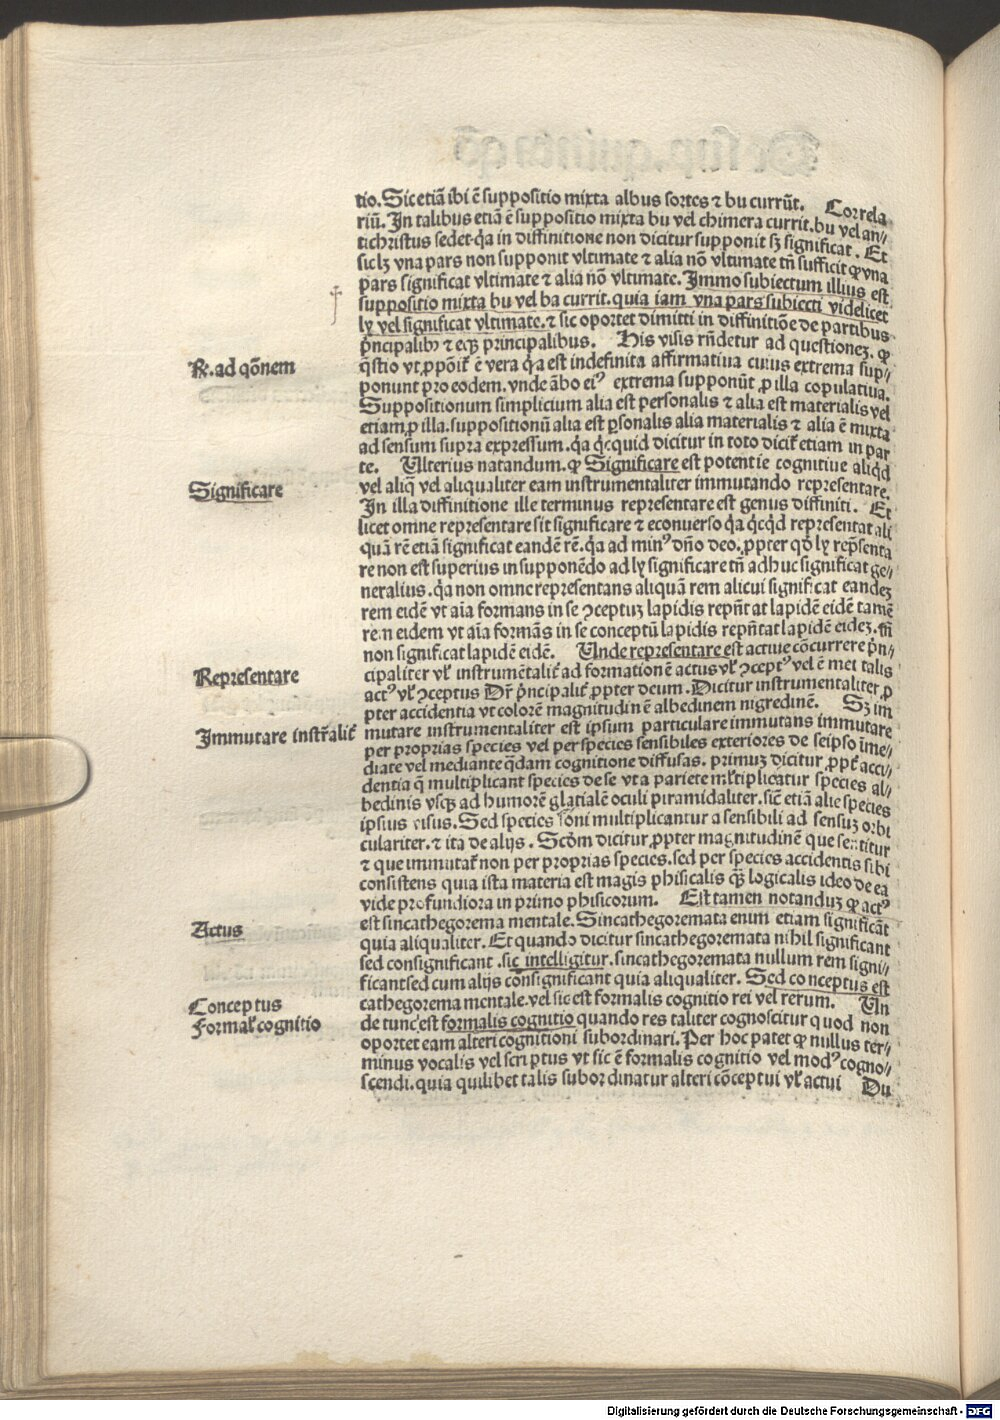 tio. Sic etiā ibi ē suppositio mixta albus sortes ⁊ bu currūt. Correla
riū. In talibus etiā ē suppositio mixta bu vel chimera currit. bu vel an//
tichristus sedet. q̇a in diffinitione non dicitur supponit sʒ significat. Et
sic lʒ vna pars non supponit vltimate ⁊ alia nō vltimate tn̄ sufficit ꝙ vna
pars significat vltimate ⁊ alia nō vltimate. Immo subiectum illius est
suppositio mixta bu vel ba currit. quia iam vna pars subiecti videlicet
ly vel significat vltimate. ⁊ sic oportet dimitti in diffinitiōe de partibus
pͥncipalibꝫ ⁊ eqꝫ principalibus. His visis rn̄detur ad questioneʒ. ꝙ
R̃. ad qōnem
q̄stio vt ꝓpōit̃ ē vera q̇a est indefinita affirmatiua cuius extrema sup//
ponunt pro eodem. vnde ābo eiꝰ extrema supponūt ꝓ illa copulatiua.
Suppositionum simplicium alia est personalis ⁊ alia est materialis vel
etiam ꝑ illa. suppositionū alia est ꝑsonalis alia materialis ⁊ alia ē mixta
ad sensum supra expressum. q̇a qͥcquid dicitur in toto dicit̃ etiam in par
te. Ulterius natandum. ꝙ Significare est potentie cognitiue aliqd̄
Significare
vel aliq̄ vel aliqualiter eam instrumentaliter immutando representare.
In illa diffinitione ille terminus representare est genus diffiniti. Et
licet omne representare sit significare ⁊ econuerso q̇a qͥcqd̄ representat ali
quā rē etiā significat eandē rē. q̇a ad minꝰ dn̄o deo. ꝓpter qd̄ ly rep̄senta
re non est superius in supponēdo ad ly significare tn̄ adhuc significat ge//
neralius. q̇a non omne representans aliquā rem alicui significat eandeʒ
rem eidē vt aīa formans in se ꝯceptuʒ lapidis repn̄tat lapidē eidē tamē
rem eidem vt aīa formās in se conceptū lapidis repn̄tat lapidē eideʒ. tn̄
non significat lapidē eidē. Unde representare est actiue cōcurrere pͥn//
Representare
cipaliter vl̃ instrumētalit̃ ad formationē actus vl̃ ꝯceptꝰ vel ē mei talis
actꝰ vl̃ ꝯceptus Dr̄ pͥncipalit̃ ꝓpter deum. Dicitur instrumentaliter ꝓ
pter accidentia vt colorē magnitudinē albedinem nigredinē. Sʒ im
Immutare instr̃alit̃
mutare instrumentaliter est ipsum particulare immutans immutare
per proprias species vel per species sensibiles exteriores de seipso īme//
diate vel mediante q̄dam cognitione diffusas. primuʒ dicitur ꝓpt̃ acci//
dentia q̄ multiplicant species de se vt a pariete ml̃tiplicatur species al//
bedinis vsqꝫ ad humorē glatialē oculi piramidaliter. sic̄ etiā alie species
ipsius visus. Sed species soni multiplicantur a sensibili ad sensuʒ orbi
culariter. ⁊ ita de alijs. Scōm dicitur ꝓpter magnitudinē que sentitur
⁊ que immutat̃ non per proprias species. sed per species accidentis sibi
consistens quia ista materia est magis phisicalis qꝫ̄ logicalis ideo de ea
vide profundiora in primo phisicorum. Est tamen notanduʒ ꝙ actꝰ
Actus
est sincathegorema mentale. Sincathegoremata enim etiam significāt
quia aliqualiter. Et quando dicitur sincathegoremata nihil significant
sed consignificant. sic intelligitur. sincathegoremata nullum rem signi//
ficant sed cum alijs cōsignificant quia aliqualiter. Sed conceptus est
Conceptus
cathegorema mentale. vel sic est formalis cognitio rei vel rerum. Un
Formal̃ cognitio
de tunc est formalis cognitio quando res taliter cognoscitur quod non
oportet eam alteri cognitioni subordinari. Per hoc patet ꝙ nullus ter//
minus vocalis vel scriptus vt sic ē formalis cognitio vel modꝰ cogno//
scendi. quia quilibet talis subordinatur alteri cōceptui vl̃ actui Du
Digitalisierung gefördert durch die Deutsche Forschungsgemeinschaft - DFG